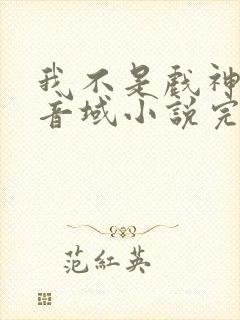 我不是戲神
音域小說完
范紅英